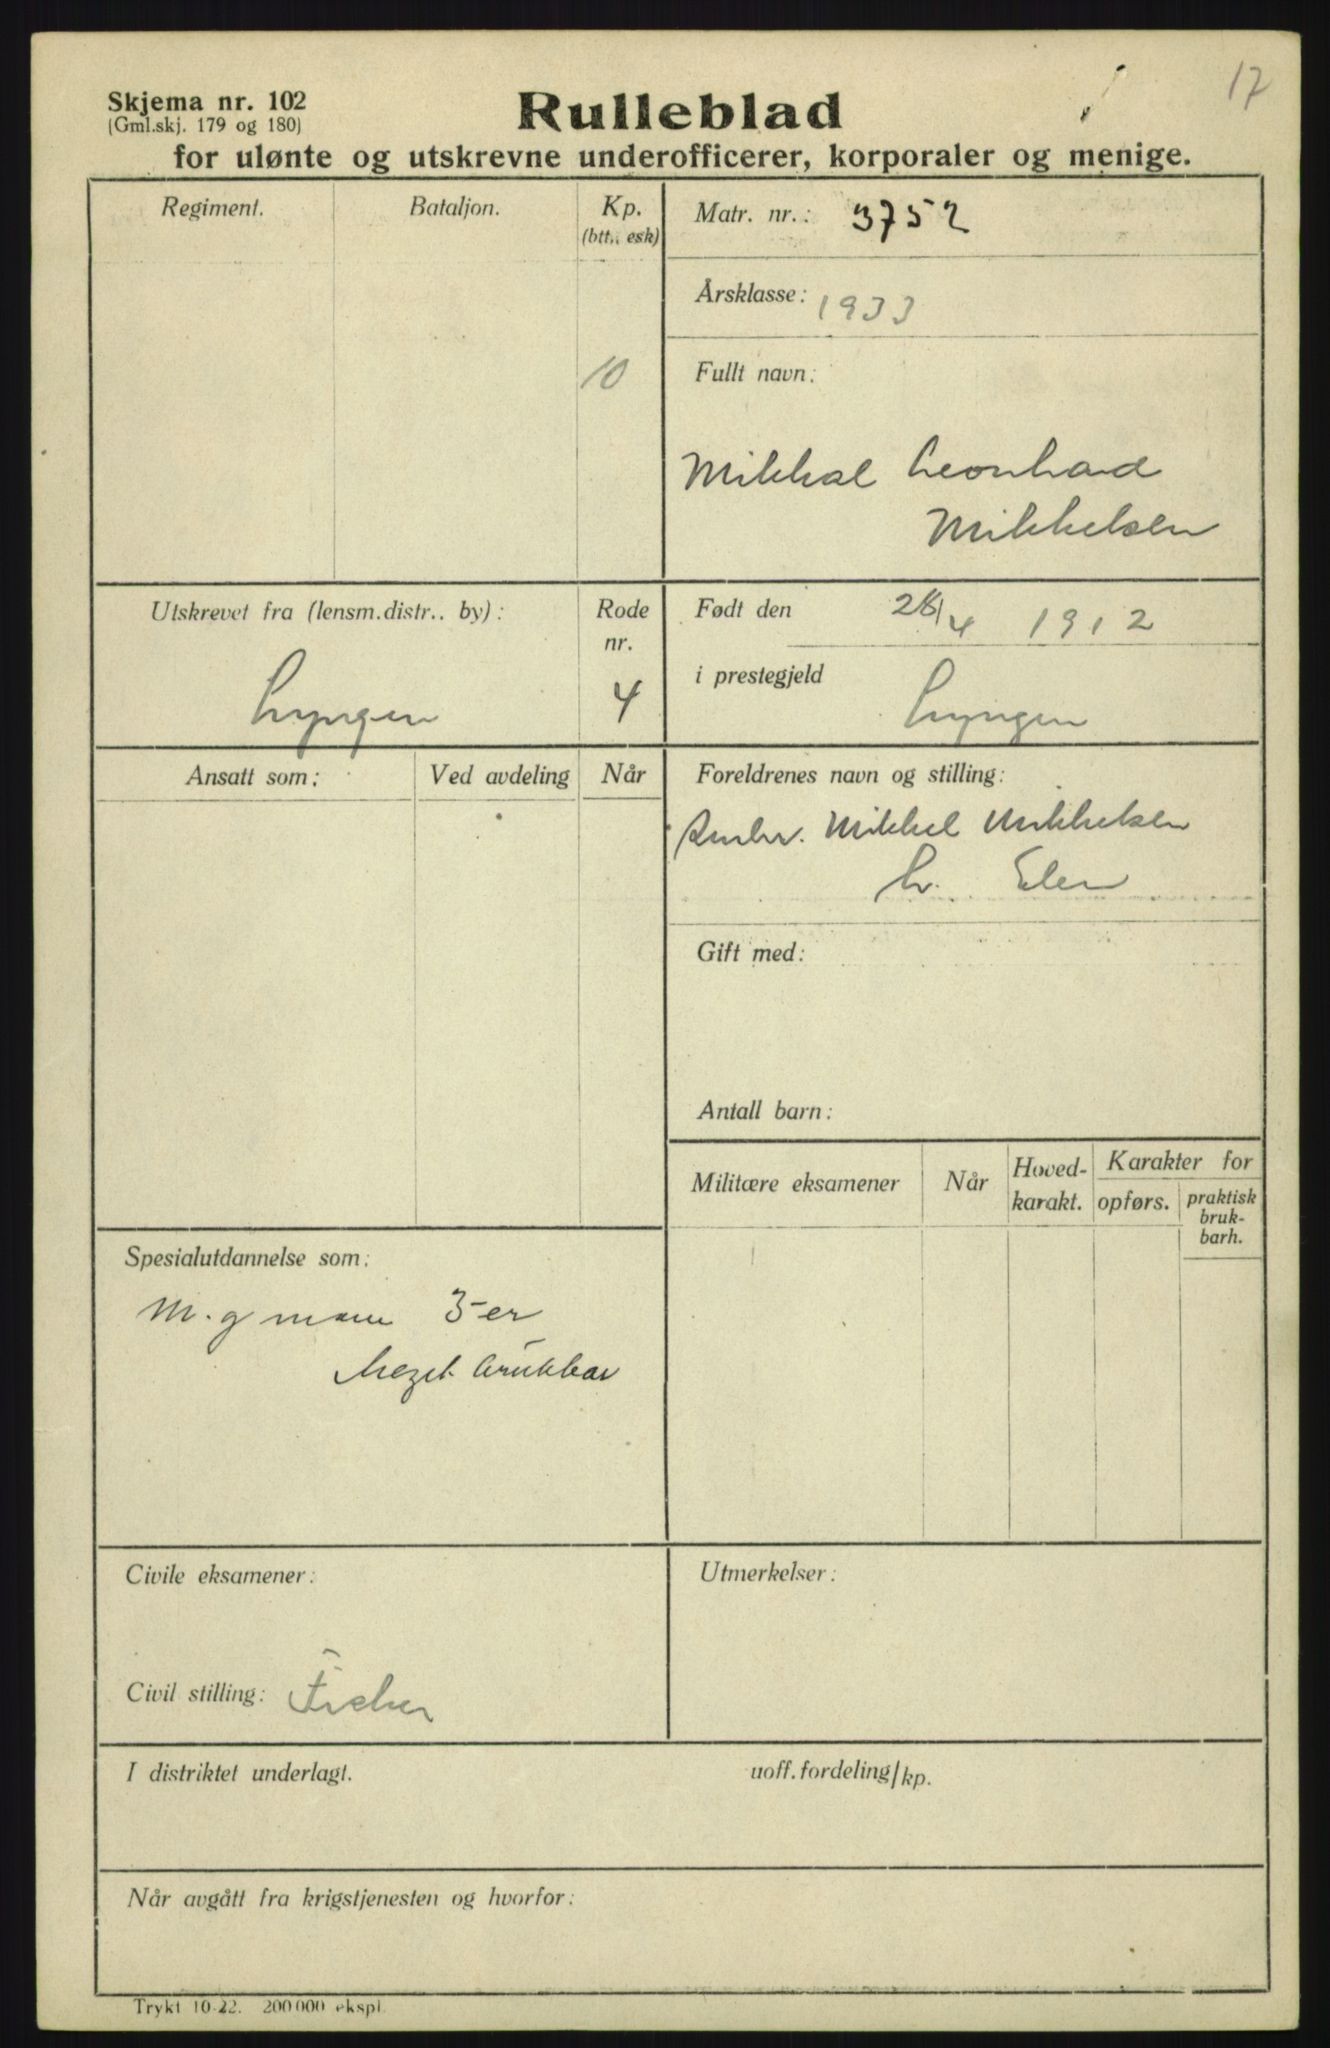 17
Skjema nr. 102
(Gml.skj. 179 og 180)
Rulleblad
for ulønte og utskrevne underofficerer, korporaler og menige.
Regiment.
Bataljon.
Kp.
(btt., esk)
10
Matr. nr.: 3752
Årsklasse: 1933
Fullt navn:
Mikkal Leonhard
Mikkelsen
Utskrevet fra (lensm.distr.. by):
Lyngen
Rode
nr.
4
Født den 26/4 1912
i prestegjeld Lyngen
Ansatt som:
Ved avdeling
Når
Foreldrenes navn og stilling:
Mikkel Mikkelsen
h. Elen
Gift med:
Antall barn:
Militære eksamener
Når
Hoved-
karakt.
Karakter for
opførs.
praktisk
bruk-
barh.
Spesialutdannelse som:
M.g mann 3-er
Meget brukbar
Civile eksamener:
Civil stilling: Fisker
Utmerkelser:
I distriktet underlagt.
uoff.fordeling/kp.
Når avgått fra krigstjenesten og hvorfor:
Trykt 10-22. 200 000 ekspl.